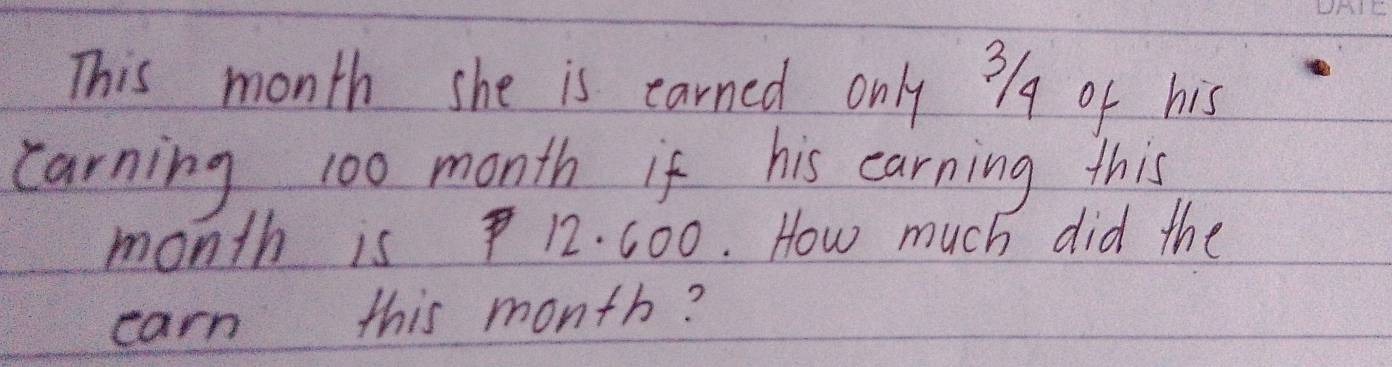 DATE
This month she is earned only 3/4 of his
earning 100 month if his earning this
month is ₱ 12.600. How much did the
earn this month?